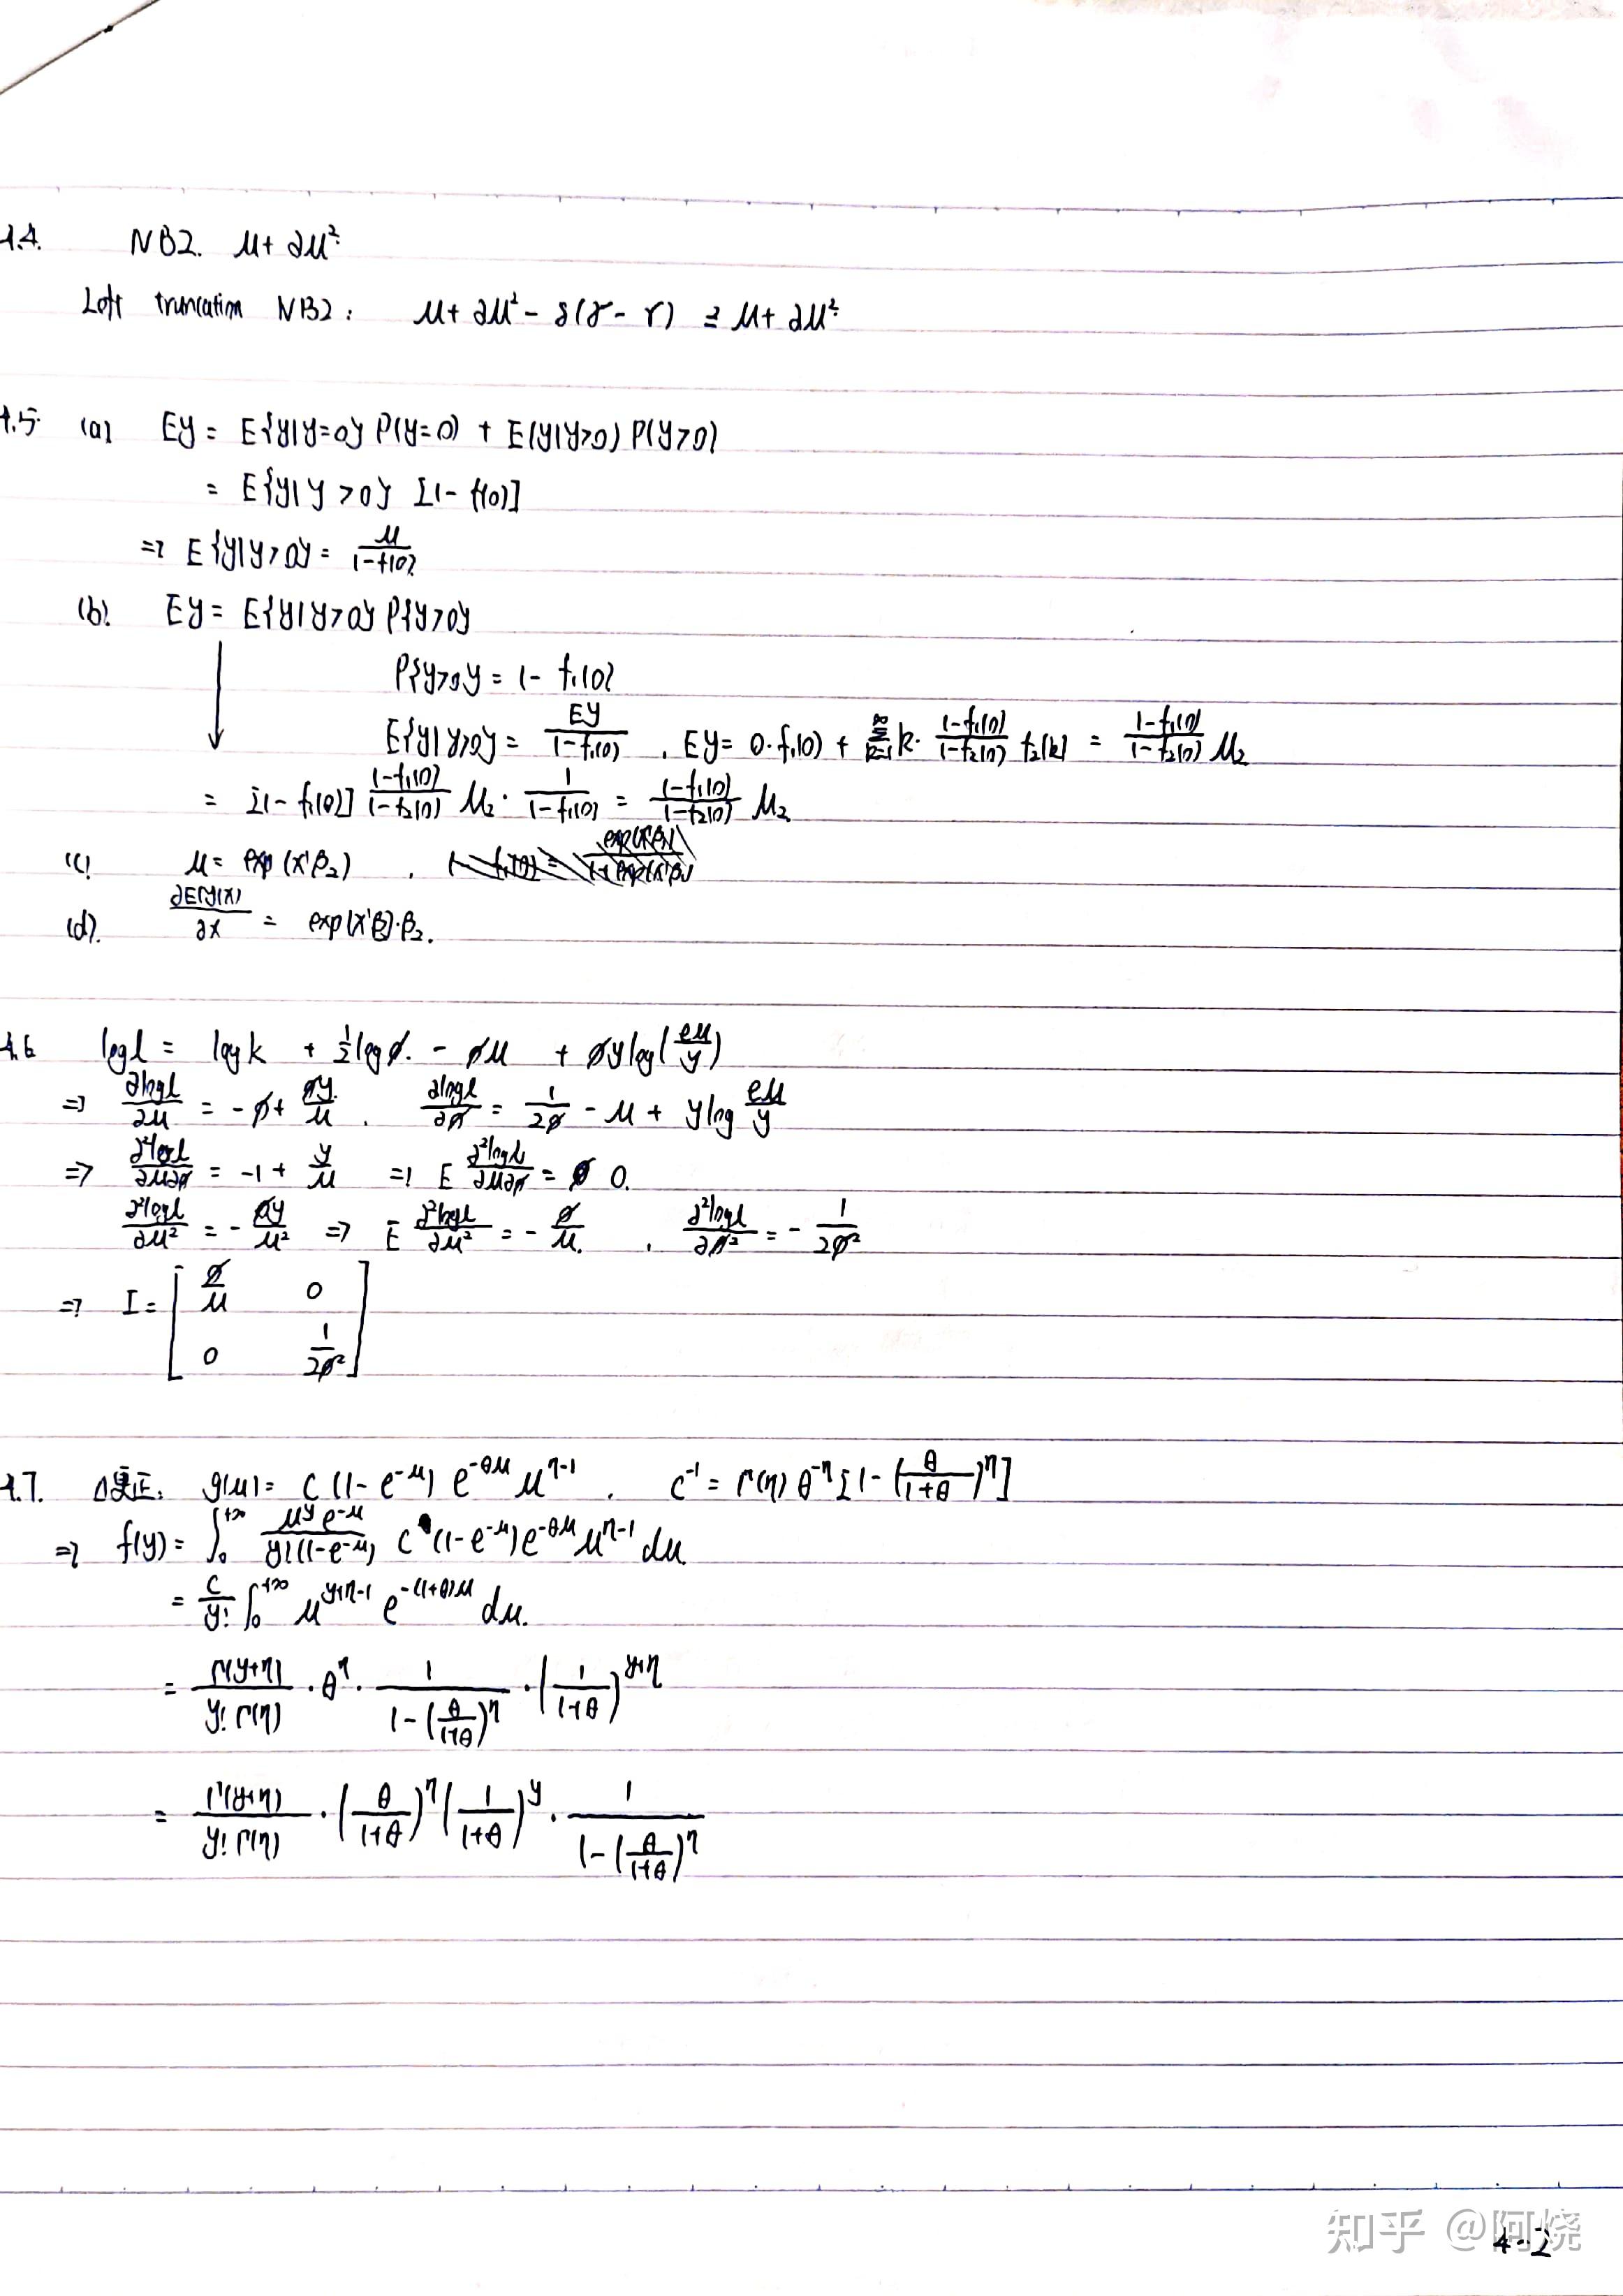 4.4. NB2. μ+ ∂μ²
Left truncation NB2: μ+ ∂μ² - δ(γ- r) ≥ μ+ ∂μ²
4.5 (a) EY = E{Y|Y=0} P(Y=0) + E(Y|Y>0) P(Y>0)
= E{Y|Y>0} [1- f(0)]
=> E{Y|Y>0} = μ/(1-f(0))
(b) EY = E{Y|Y>0} P{Y>0}
P{Y>0} = 1- f₁(0)
E{Y|Y>0} = EY/(1-f₁(0)) , EY = 0·f₁(0) + ∑_{k=1}^{∞} k· (1-f₁(0))/(1-f₂(0)) f₂(k) = (1-f₁(0))/(1-f₂(0)) μ₂
= [1-f₁(0)] (1-f₁(0))/(1-f₂(0)) μ₂ · 1/(1-f₁(0)) = (1-f₁(0))/(1-f₂(0)) μ₂
(c) μ = exp(x'β₂) .
(d). ∂E(y|x)/∂x = exp(x'β₂)·β₂.
4.6 logl = log k + ½ log ø. - øμ + øy log(eμ/y)
=> ∂logl/∂μ = -ø + øy/μ . ∂logl/∂ø = 1/2ø - μ + y log eμ/y
=> ∂²logl/∂μ∂ø = -1 + y/μ => E ∂²logl/∂μ∂ø = 0.
∂²logl/∂μ² = - øy/μ² => E ∂²logl/∂μ² = - ø/μ . ∂²logl/∂ø² = - 1/2ø²
=> I = [ ø/μ 0
0 1/2ø² ]
4.7. Δ更正: g(μ) = C (1-e^{-μ}) e^{-θμ} μ^{η-1} . C^{-1} = Γ(η) θ^{-η} [1-(θ/(1+θ))^η]
=> f(y) = ∫₀^{+∞} μ^y e^{-μ}/(y!(1-e^{-μ})) C (1-e^{-μ}) e^{-θμ} μ^{η-1} dμ
= C/y! ∫₀^{+∞} μ^{y+η-1} e^{-(1+θ)μ} dμ.
= Γ(y+η)/(y! Γ(η)) · θ^η · 1/(1-(θ/(1+θ))^η) · (1/(1+θ))^{y+η}
= Γ(y+η)/(y! Γ(η)) · (θ/(1+θ))^η (1/(1+θ))^y · 1/(1-(θ/(1+θ))^η)
知乎 @阿烧
4-2